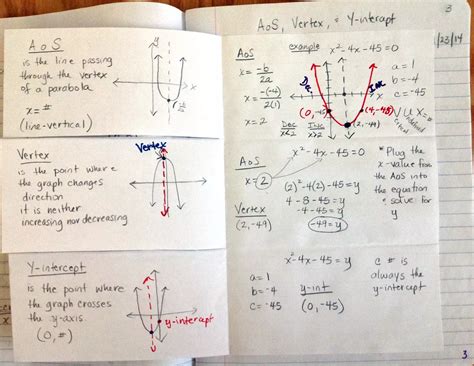 3
AoS, Vertex, + Y-intercept
1/23/14
AoS
is the line passing
through the vertex
of a parabola
x = #
(line-vertical)
y
x
Vertex
is the point where
the graph changes
direction
it is neither
increasing nor decreasing
Vertex
Y-intercept
is the point where
the graph crosses
the y-axis.
(0, #)
y-intercept
AoS
x = -b
2a
x = -(-4)
2(1)
x = 2
example x²-4x-45=0
a = 1
b = -4
c = -45
Dec
x<2
Inc
x>2
(0,-45)
(4,-45)
(2,-49)
x
AoS
x = 2
x²-4x-45=0
(2)²-4(2)-45=y
4-8-45=y
-4-45=y
-49=y
Vertex
(2,-49)
* Plug the
x-value from
the AoS into
the equation
+ solve for
y
x²-4x-45=0
a = 1
b = -4
c = -45
y-int
(0,-45)
c # is
always the
y-intercept
3